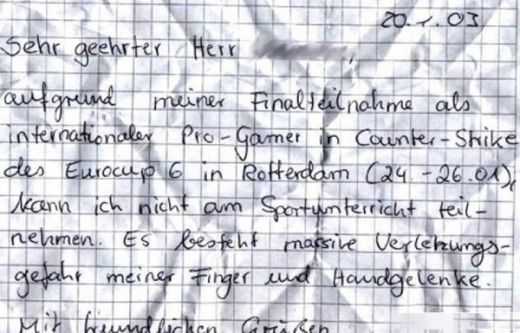 20.1.03
Sehr geehrter Herr
aufgrund meiner Finalteilnahme als
internationaler Pro-Gamer in Counter-Strike
des Eurocup 6 in Rotterdam (24.-26.01),
kann ich nicht am Sportunterricht teil-
nehmen. Es besteht massive Verletzungs-
gefahr meiner Finger und Handgelenke.
Mit freundlichen Grüßen